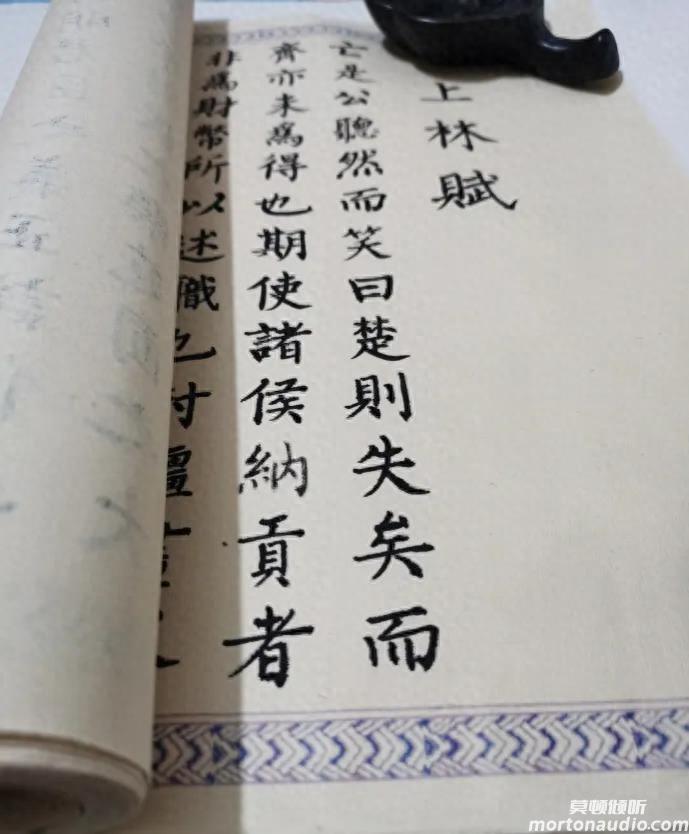 上林賦
亡是公聽然而笑曰楚則失矣而
齊亦未爲得也期使諸侯納貢者
非爲財幣所以述職也封疆
莫顿倾听
mortonaudio.com